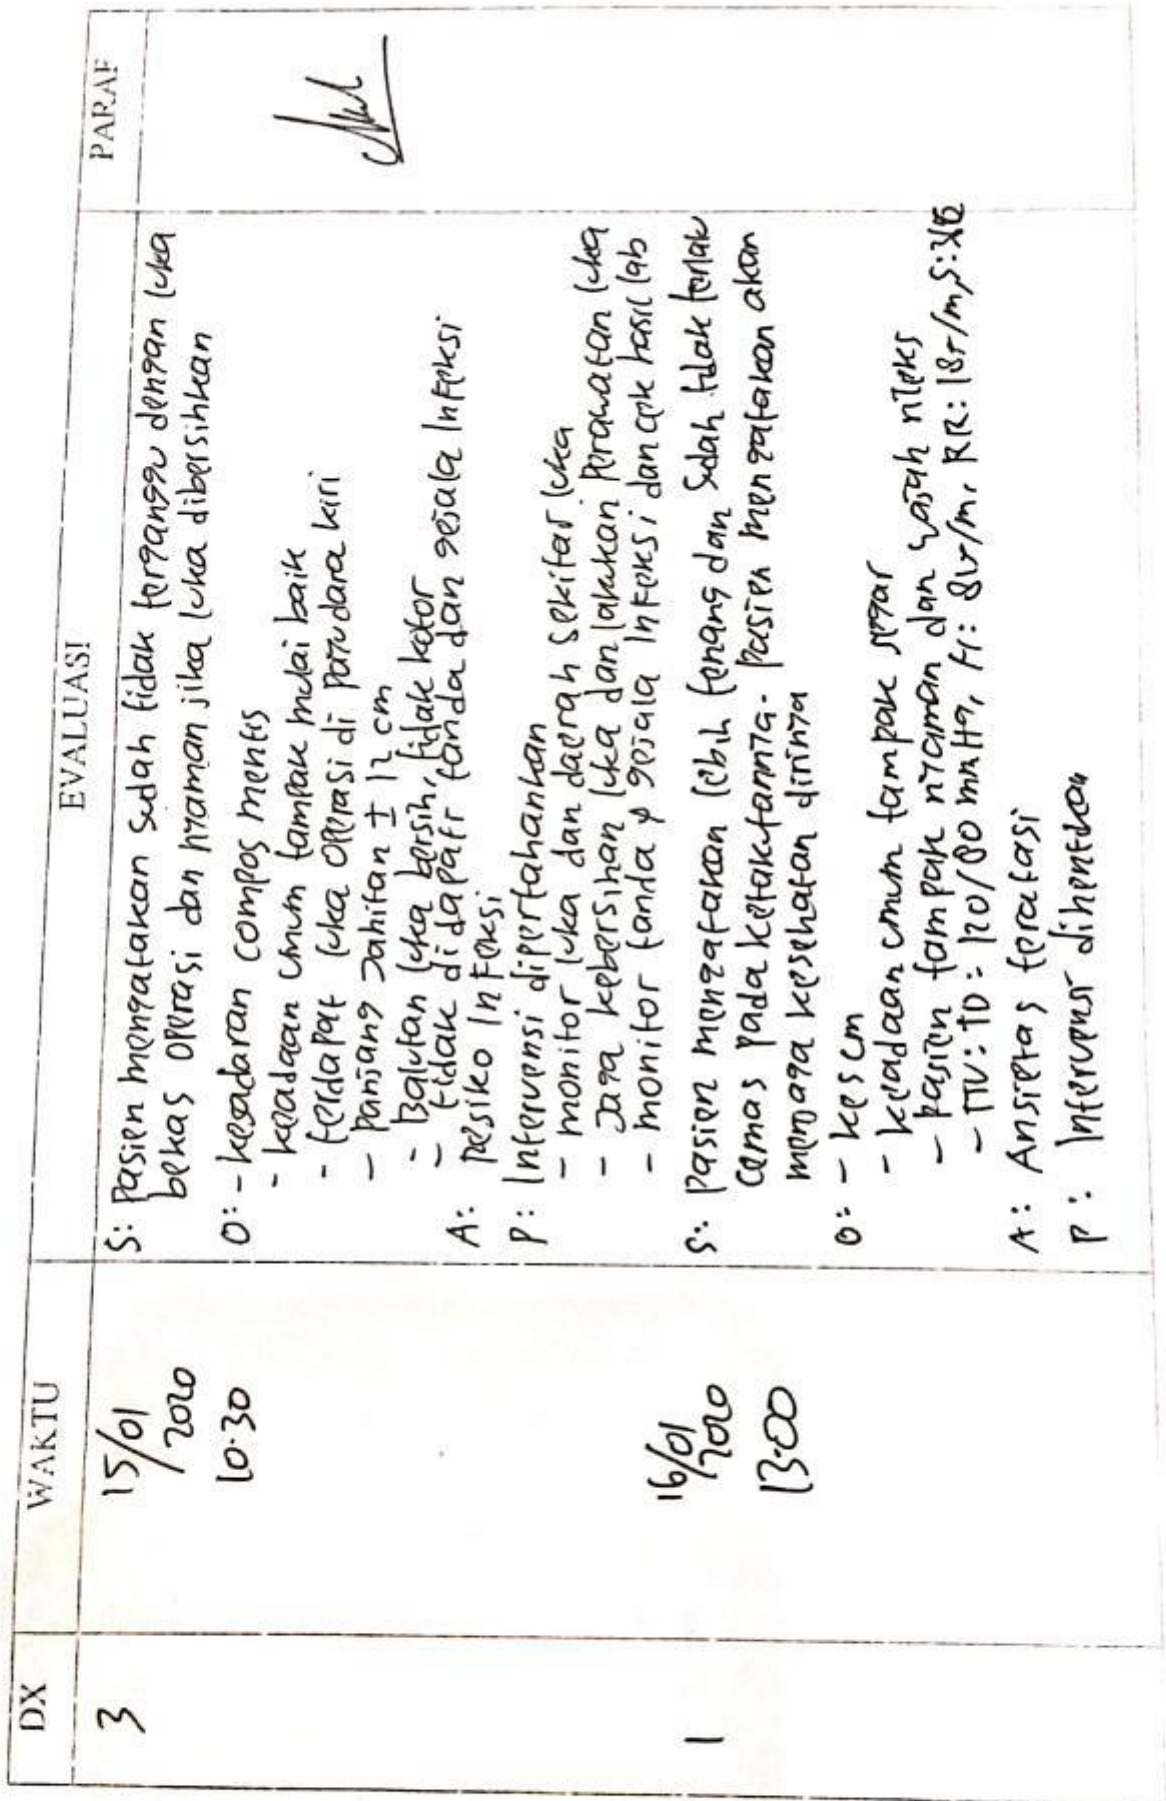 DX WAKTU EVALUASI PARAF
3
15/01
2020
10.30
S: Pasien mengatakan sudah tidak terganggu dengan luka
bekas operasi dan nyaman jika luka dibersihkan
O: - kesadaran compos mentis
- keadaan umum tampak mulai baik
- terdapat luka operasi di payudara kiri
- panjang jahitan ± 12 cm
- Balutan luka bersih, tidak kotor
- tidak didapati tanda dan gejala Infeksi
A: Resiko Infeksi
P: Intervensi dipertahankan
- monitor luka dan daerah sekitar luka
- Jaga kebersihan luka dan lakukan perawatan luka
- monitor tanda & gejala Infeksi dan cek hasil lab
1
16/01
2020
13.00
S: Pasien mengatakan lebih tenang dan sudah tidak terlalu
cemas pada ketakutannya. Pasien mengatakan akan
menjaga kesehatan dirinya
O: - kes cm
- keadaan umum tampak segar
- pasien tampak nyaman dan wajah rileks
- TTV: TD: 120/80 mmHg, RR: 18x/m, S:
A: Ansietas teratasi
P: Intervensi dihentikan